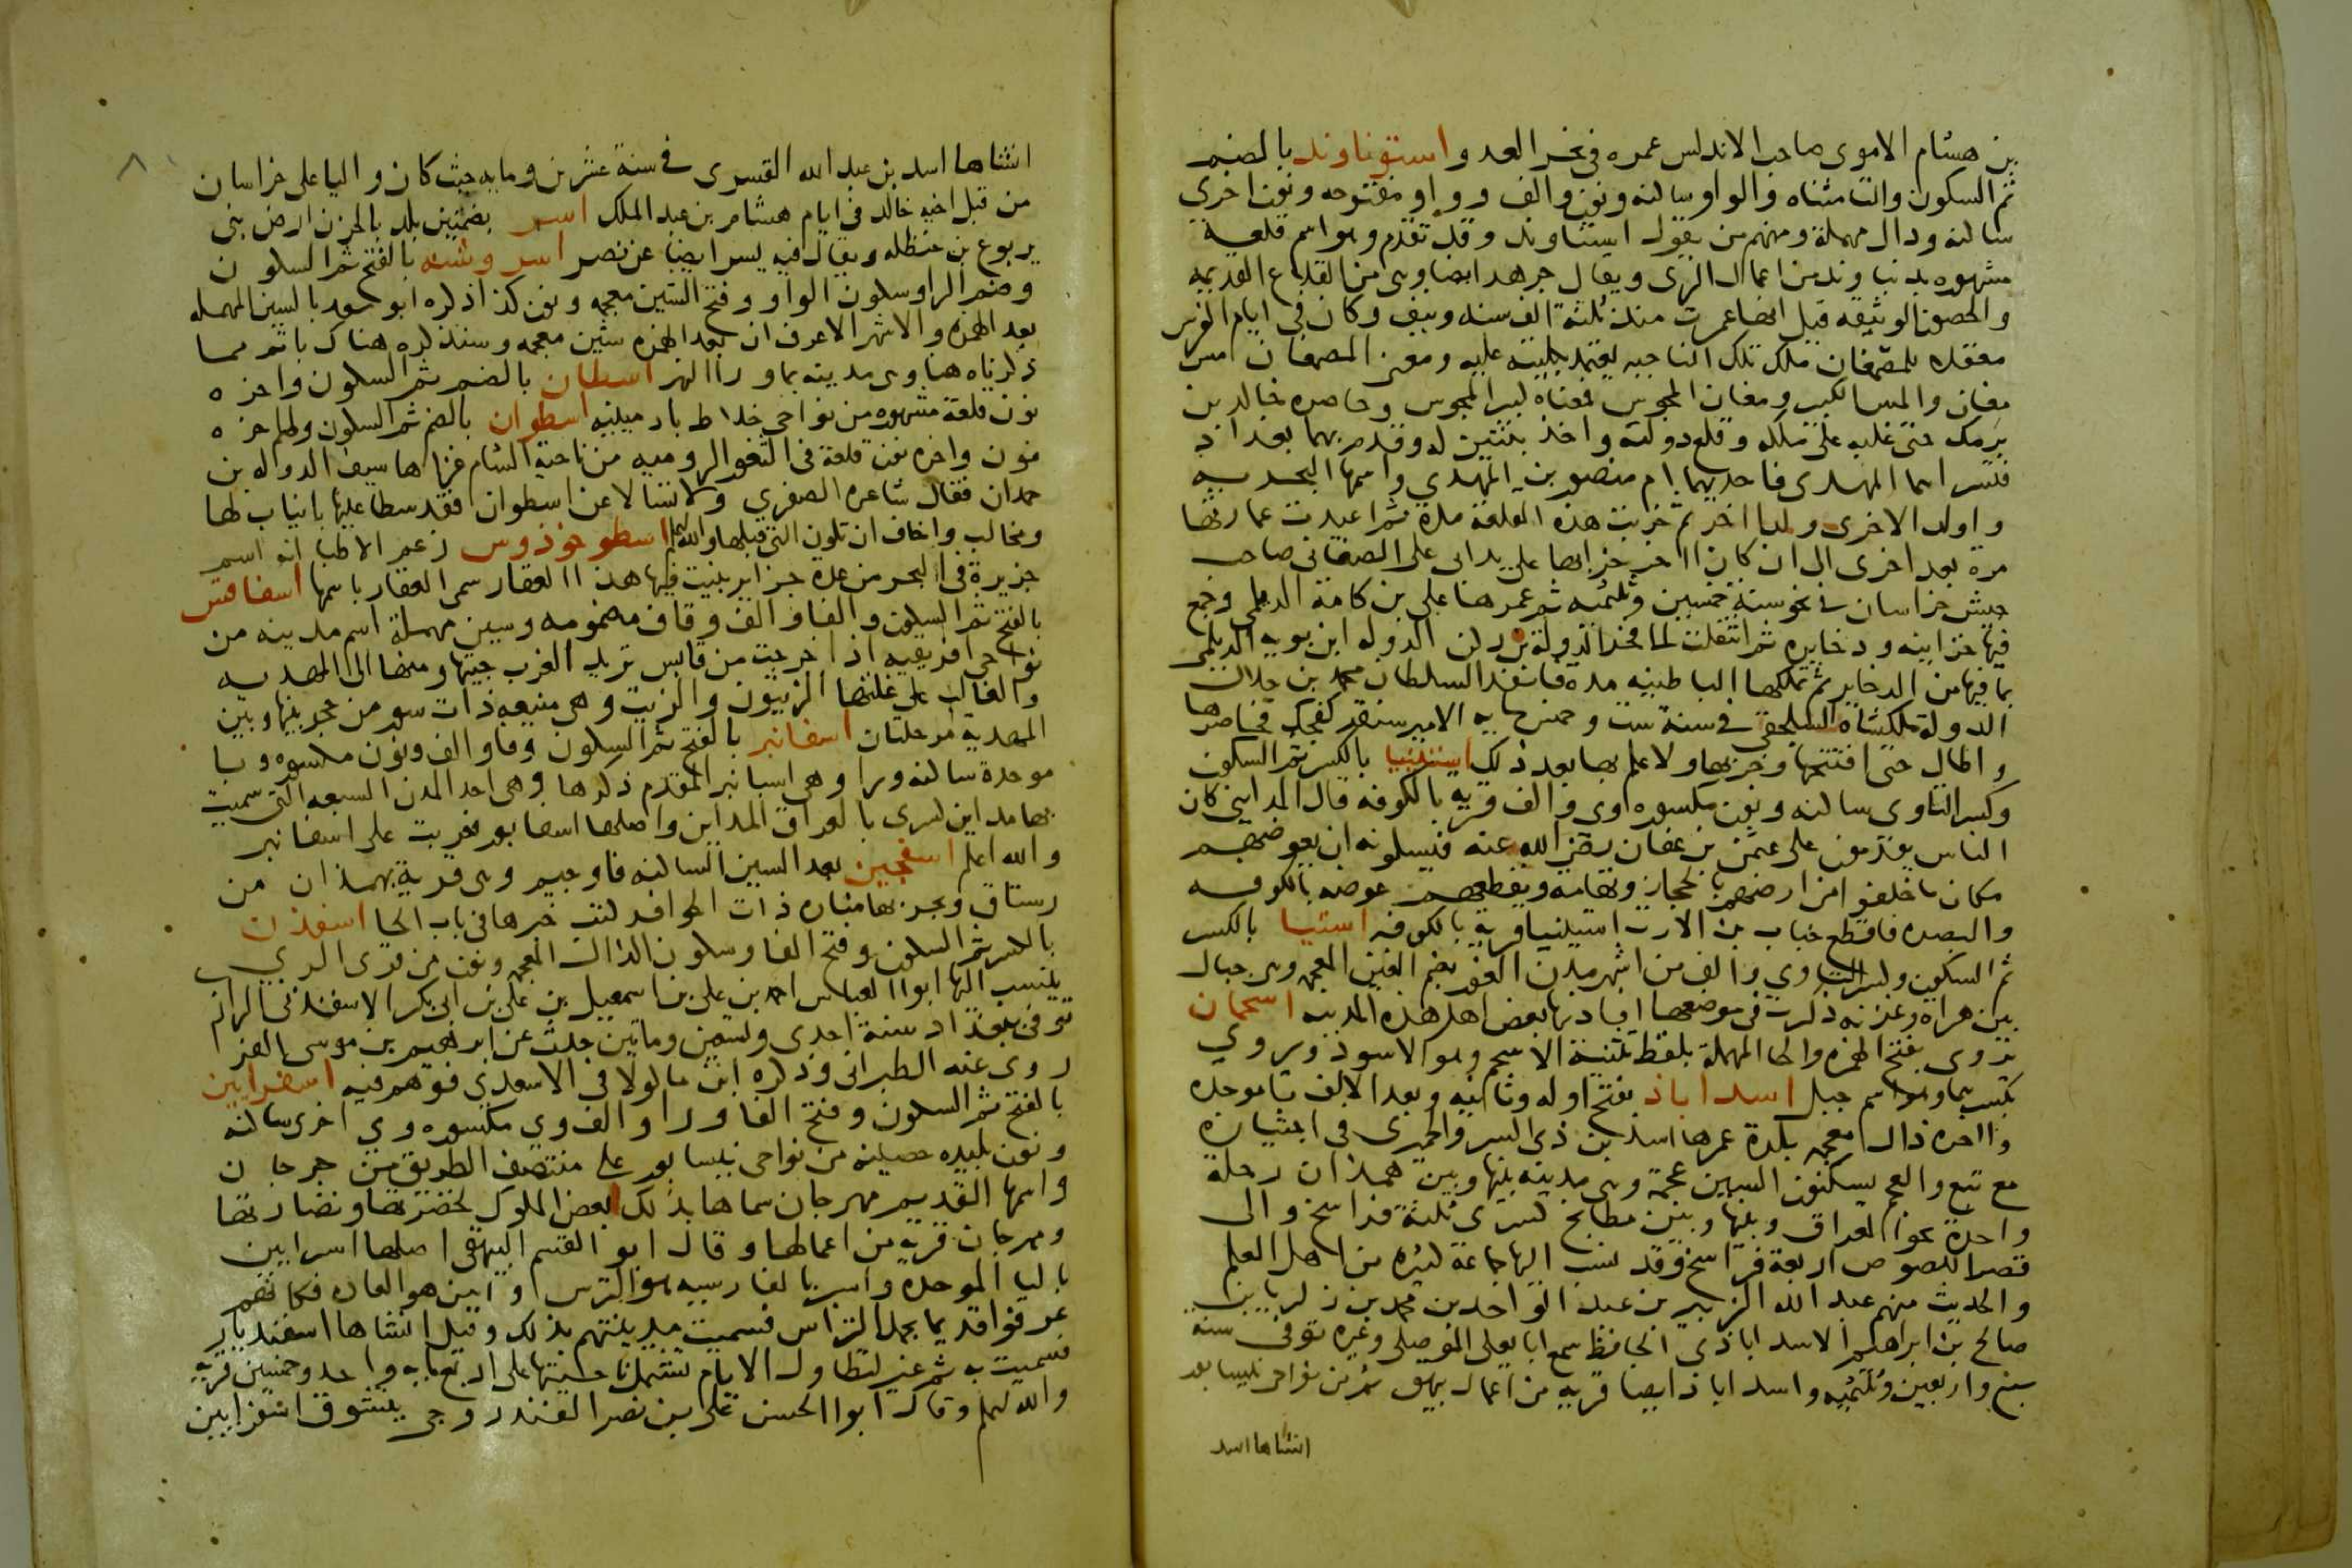 بن هشام الاموى صاحب الاندلس عمره فى نحر العدو استوناوند بالضم
ثم السكون والتا مثناه والواو ساكنه ونون والف وواو مفتوحه ونون اخرى
ساكنه ودال مهملة ومنهم من يقول استناوند وقد تقدم وهو اسم قلعة
مشهوره بدنباوند من اعمال الرى ويقال جرهد ايضا وهى من القلاع القديمه
والحصون الوثيقه قيل انها عمرت منذ ثلثة الف سنه ونيف وكان فى ايام الفرس
معقلا للمصمغان ملك تلك الناحيه يعتمد بكليته عليه ومعنى المصمغان مس
مغان والمس الكبير ومغان المجوس فمعناه كبير المجوس وحاصره خالد بن
برمك حتى غلبه على ملكه وقلع دولته واخذ بنتين له وقدم بهما بغداد
فشراهما المهدى فاحديهما ام منصور بن المهدي واسمها البحريه
واولد الاخرى ولدا اخر ثم خربت هذه القلعة مدة ثم اعيدت عمارتها
مرة بعد اخرى الى ان كان اخر خرابها على يد ابى على الصغانى صاحب
جيش خراسان فى نحو سنة خمسين وثلثميه ثم عمرها على بن كامة الديلمى وجمع
فيها خزاينه وذخايره ثم انتقلت لما فخر الدولة بن ركن الدوله ابن بويه الديلمى
بما فيها من الدخاير ثم تملكها الباطنيه مده فانفذ السلطان محمد بن جلال
الدولة ملكشاه السلجقى فى سنة ست وخمسمايه الامير سنقر كنجك فحاصرها
واطال حتى افتتحها وخربها ولا علم بها بعد ذلك استينيا بالكسر ثم السكون
وكسر التا وى ساكنه ونون مكسوره وى والف قريه بالكوفه قال المداينى كان
الناس يقدمون على عثمن بن عفان رضى الله عنه فيسلونه ان يعوضهم
مكان ما خلفوا من ارضهم بالحجاز وتهامه ويقطعهم عوضه بالكوفه
والبصره فاقطع خباب بن الارت استينيا قرية بالكوفه استيا بالكسر
ثم السكون وكسر التا وي والف من اشهر مدن الغور بضم الغين المعجمه وهى جبال
بين هراه وغزنه ذكرت فى موضعها افادنيها بعض اهل هذه المدينه اسحمان
يروى بفتح الهمزه والحا المهملة بلفظ تثنية الاسحم وهو الاسود ويروي
بكسرهما وهو اسم جبل اسداباذ بفتح اوله وثانيه وبعد الالف با موحده
واخره ذال معجمه بلدة عمرها اسد بن ذى السرو الحميرى فى اجتيازه
مع تبع والعجم يسكنون السين عجمة وهى مدينه بينها وبين همذان رحلة
واحدة نحو العراق وبينها وبين مطابخ كسرى ثلثة فراسخ والى
قصر اللصوص اربعة فراسخ وقد نسب اليها جماعة كثيره من اهل العلم
والحديث منهم عبد الله الزبير بن عبد الواحد بن محمد بن زكريا بن
صالح بن ابراهيم الاسداباذى الحافظ سمع ابا يعلى الموصلى وغيره توفى سنه
سبع واربعين وثلثميه واسداباذ ايضا قريه من اعمال بيهق ثم من نواحى نيسابور
انشاها اسد
انشاها اسد بن عبد الله القسرى فى سنة عشرين ومايه حيث كان واليا على خراسان
من قبل اخيه خالد فى ايام هشام بن عبد الملك اسر بضمتين بلد بالحزن ارض بنى
يربوع بن حنظله ويقال فيه يسر ايضا عن نصر اسروشنه بالفتح ثم السكون
وضم الرا وسكون الواو وفتح الشين معجمه ونون كذا ذكره ابو سعد بالسين المهمله
بعد الهمزه والاشهر الاعرف ان بعد الهمزه شين معجمه وسنذكره هناك باتم مما
ذكرناه هنا وهى مدينه بما ورا النهر اسطان بالضم ثم السكون واخره
نون قلعة مشهوره من نواحى خلاط بارمينيه اسطوان بالضم ثم السكون واخره
نون واخره نون قلعة فى الثغور الروميه من ناحية الشام غزاها سيف الدوله بن
حمدان فقال شاعره الصفري ولا تسالا عن اسطوان فقد سطا عليها بانياب لها
ومخالب واخاف ان تكون التى قبلها والله اعلم اسطوخوذوس زعم الاطبا انه اسم
جزيرة فى البحر من عدة جزاير ينبت فيها هذا العقار سمى العقار باسمها اسفاقس
بالفتح ثم السكون والفا والف وقاف مضمومه وسين مهملة اسم مدينه من
نواحى افريقيه اذا خرجت من قابس تريد الغرب جيتها ومنها الى المهديه
والغالب على غلتها الزيتون والزيت وهى منيعه ذات سور من حجر بينها وبين
المهديه مرحلتان اسفانبر بالفتح ثم السكون وفا والف ونون مكسوره وبا
موحدة ساكنه ورا وهى اسبانبر المقدم ذكرها وهى احد المدن السبعه التى سميت
بها مداين كسرى بالعراق المداين واصلها اسفابور فعربت على اسفانبر
والله اعلم اسفجين بعد السين الساكنه فا وجيم وهى قرية بهمذان من
رستاق ويجر بها مناره ذات الحوافر كتبت خبرها فى باب الحا اسفذن
بالكسر ثم السكون وفتح الفا وسكون الذال المعجمه ونون من قرى الرى
ينسب اليها ابوا العباس احمد بن على بن اسمعيل بن على بن ابى بكر الاسفذنى الرازى
توفى ببغداد سنة احدى وتسعين وماتين حدث عن ابرهيم بن موسى الفر
روى عنه الطبرانى وذكره ابن ماكولا فى الاسعدى فوهم فيه اسفرايين
بالفتح ثم السكون وفتح الفا ورا والف وي مكسوره وي اخرى ساكنه
ونون بليده حصينه من نواحى نيسابور على منتصف الطريق من جرجان
واسمها القديم مهرجان سماها بذلك بعض الملوك لخضرتها ونضارتها
ومهرجان قرية من اعمالها وقال ابو القسم البيهقى اصلها اسبرايين
باليا الموحده واسبر بالفارسيه هو الترس وايين هو العاده فكانهم
عرفوا قديما بحمل التراس فسميت مدينتهم بذلك وقيل انشاها اسفنديار
فسميت به ثم غير لتطاول الايام تشتمل ناحيتها على اربع مايه واحد وخمسين قريه
والله اعلم وقال ابوا الحسن على بن نصر الفندروجى يتشوق اسفرايين